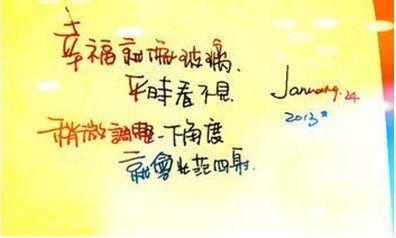 幸福就像玻璃.
平時看不見
January.24
2013*
稍微調整一下角度
就會光芒四射.